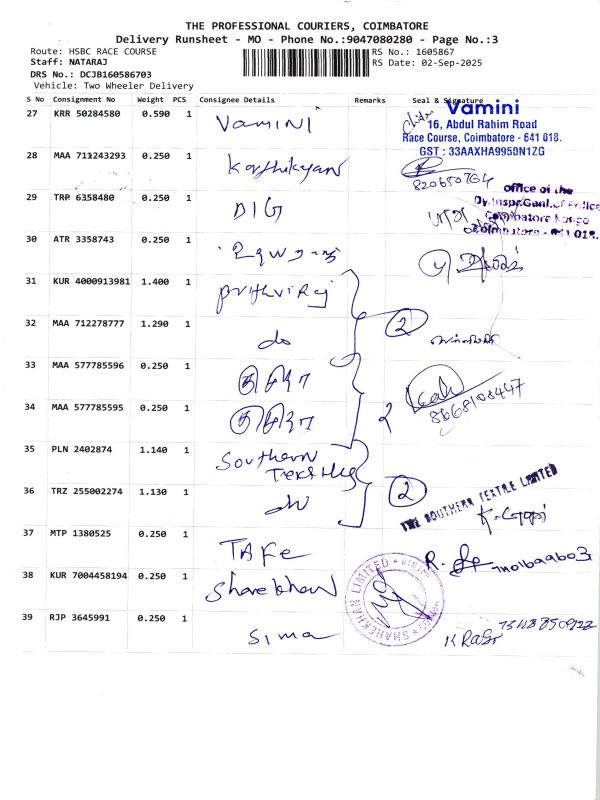 THE PROFESSIONAL COURIERS, COIMBATORE
Delivery Runsheet - MO - Phone No.:9047080280 - Page No.:3
Route: HSBC RACE COURSE
RS No.: 1605867
Staff: NATARAJ
RS Date: 02-Sep-2025
DRS No.: DCJB160586703
Vehicle: Two Wheeler Delivery
S No Consignment No Weight PCS Consignee Details Remarks Seal & Signature
27 KRR 50284580 0.590 1 Vamini
Vamini
16, Abdul Rahim Road
Race Course, Coimbatore - 641 018.
GST : 33AAXHA9950N1ZG
28 MAA 711243293 0.250 1 Karthikeyan
29 TRP 6358480 0.250 1 DIG
office of the
Dy.Inspr.Genl.of Police
Coimbatore Range
Coimbatore - 641 018.
30 ATR 3358743 0.250 1
31 KUR 4000913981 1.400 1 Prithviraj
32 MAA 712278777 1.290 1 do 2
33 MAA 577785596 0.250 1
34 MAA 577785595 0.250 1 2
8668108447
35 PLN 2402874 1.140 1 Southern
Textiles
36 TRZ 255002274 1.130 1 do 2
THE SOUTHERN TEXTILE LIMITED
K. Gopi
37 MTP 1380525 0.250 1 TAFE
38 KUR 7004458194 0.250 1 Sharekhan
SHAREKHAN LIMITED
39 RJP 3645991 0.250 1 Sima